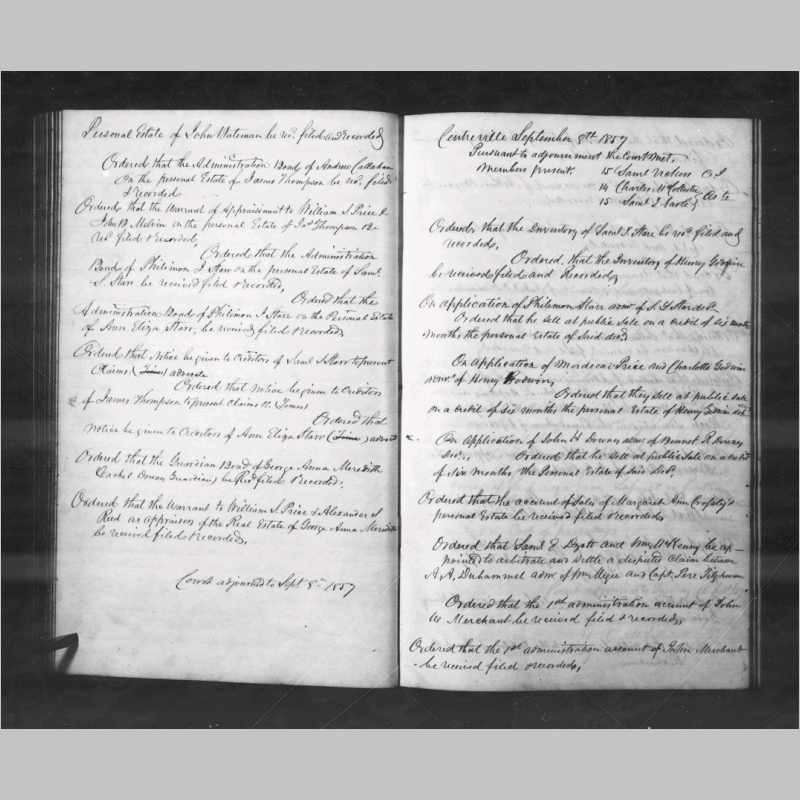 Personal Estate of John Wateman be recd. filed and recorded
Ordered that the Administration Bond of Andrew Callahan
on the personal Estate of James Thompson be recd. filed
& recorded
Ordered that the Warrant of Appraisment to William S. Price &
John B. Melvin on the personal Estate of Jas Thompson be
recd filed & recorded,
Ordered that the Administration
Bond of Philimon J Starr on the personal Estate of Saml.
S. Starr be received filed & recorded,
Ordered that the
Administration Bond of Philimon J. Starr on the Personal Estate
of Ann Eliza Starr, be received filed & recorded,
Ordered that Notice be given to Creditors of Saml S Starr to present
Claims, (Times)
Ordered that notice be given to Creditors
of James Thompson to present Claims &c. (Times)
Ordered that
Notice be given to Creditors of Ann Eliza Starr (Times)
Ordered that the Guardian Bond of George Anna Meredith
Guardian) be Recd filed & recorded.
Ordered that the Warrant to William S. Price & Alexander S
Reed as appraisers of the Real Estate of George Anna Meredith
be received filed & recorded,
Court adjourned to Sept 8th 1857
Centreville September 8th 1857
Pursuant to adjournment the Court met,
Members present. 15 Saml CJ
14 Charles McCollister
15 Saml T. As Js
Ordered, that the Inventory of Saml S. Starr be recd filed and
recorded,
Ordered, that the Inventory of Henry Godwin
be received filed and Recorded,
On application of Philemon Starr admr of S. S. Starr decd.
Ordered that he sell at public Sale on a credit of six months
months the personal Estate of Said decd.
On Application of Mordecai Price and Charlotte Godwin
admr. of Henry Godwin,
Ordered that they sell at public sale
on a credit of six months the personal Estate of Henry Godwin decd
On Application of John H Downey admr of Bennet R Downey
decd., Ordered that he sell at public Sale on a credit
of six months the Personal Estate of said Decd.
Ordered that the account of Sales of Margaret Ann
personal Estate be received filed & recorded,
Ordered that Saml E and Wm McKenny be ap-
pointed to arbitrate and settle a disputed claim between
A. A. Duhammel admr of Wm and Capt,
Ordered that the 1st administration account of John
W Merchant be received filed & recorded,
Ordered that the 1st administration account of John Merchant
be received filed & recorded,